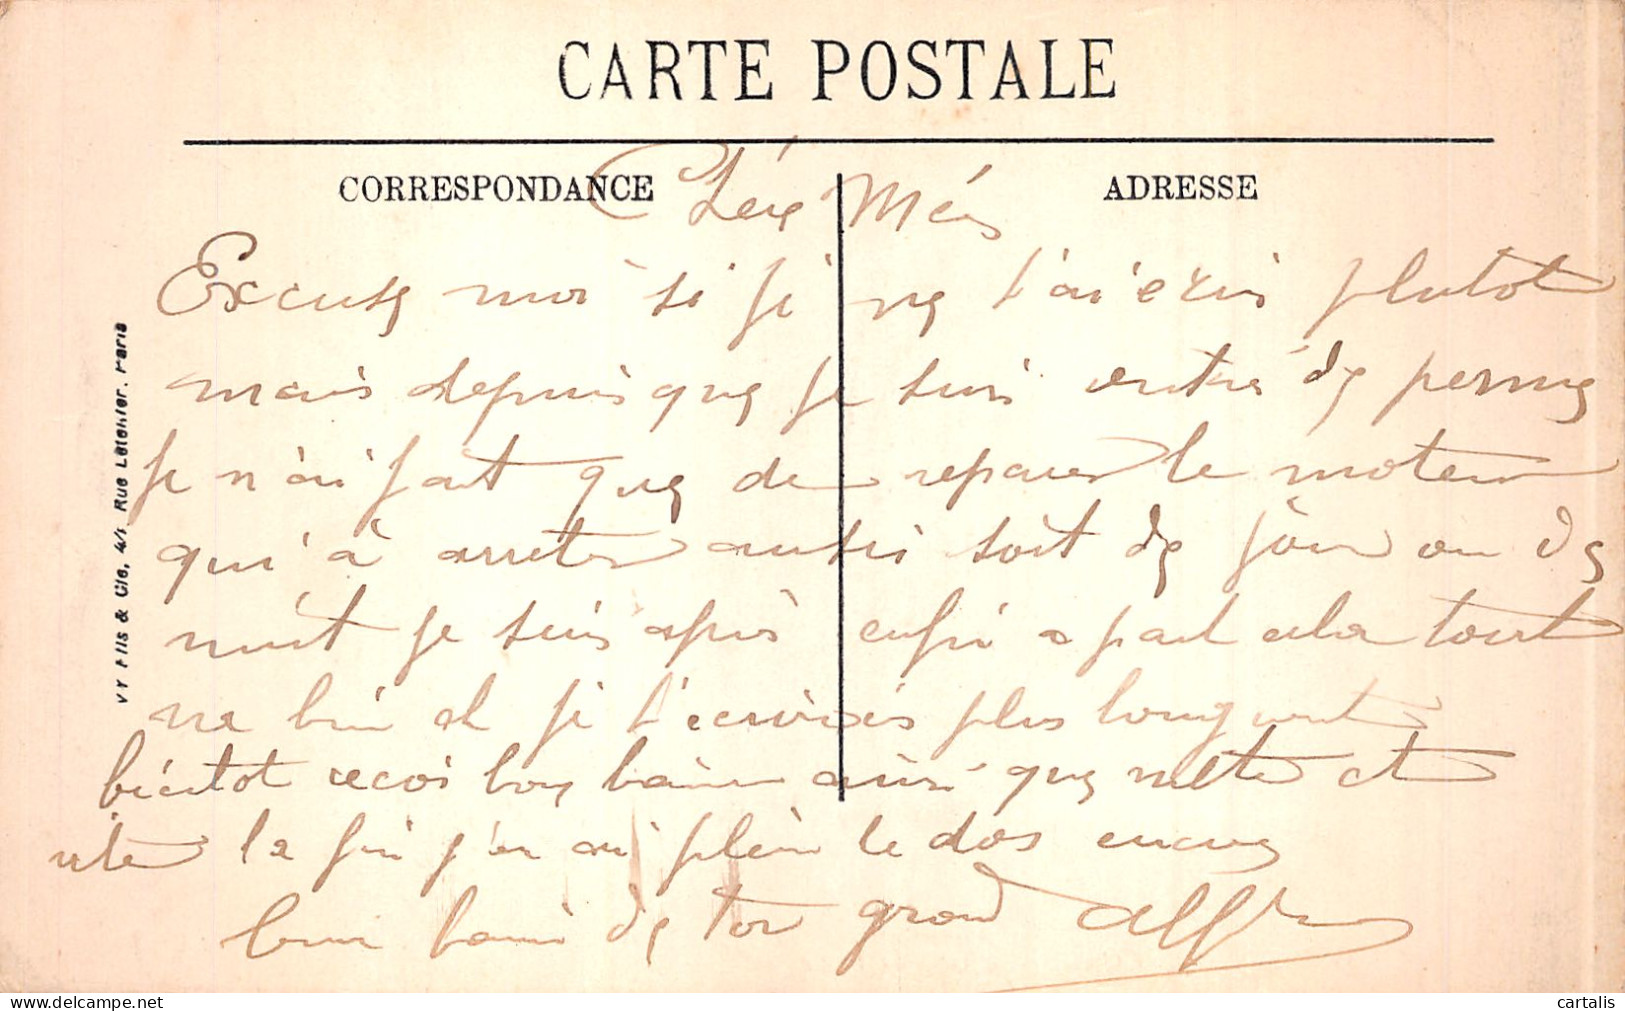 CARTE POSTALE
CORRESPONDANCE
ADRESSE
Excuse moi si je ne t'ai ecris plutot
mais depuis que je suis entré de perme
Je n'ai fait que de reparer le moteur
qui a arreter aussi soit de jour ou de
nuit je suis apris enfin a part cela tout
va bien et je t'ecrirais plus longuement
bientot recoi bon baiser ainsi que et
vite la fin j'en ai plein le dos encore
bon baiser de ton grand Alfred
VY Fils & Cie, 4/1, Rue Letellier. Paris
cartalis